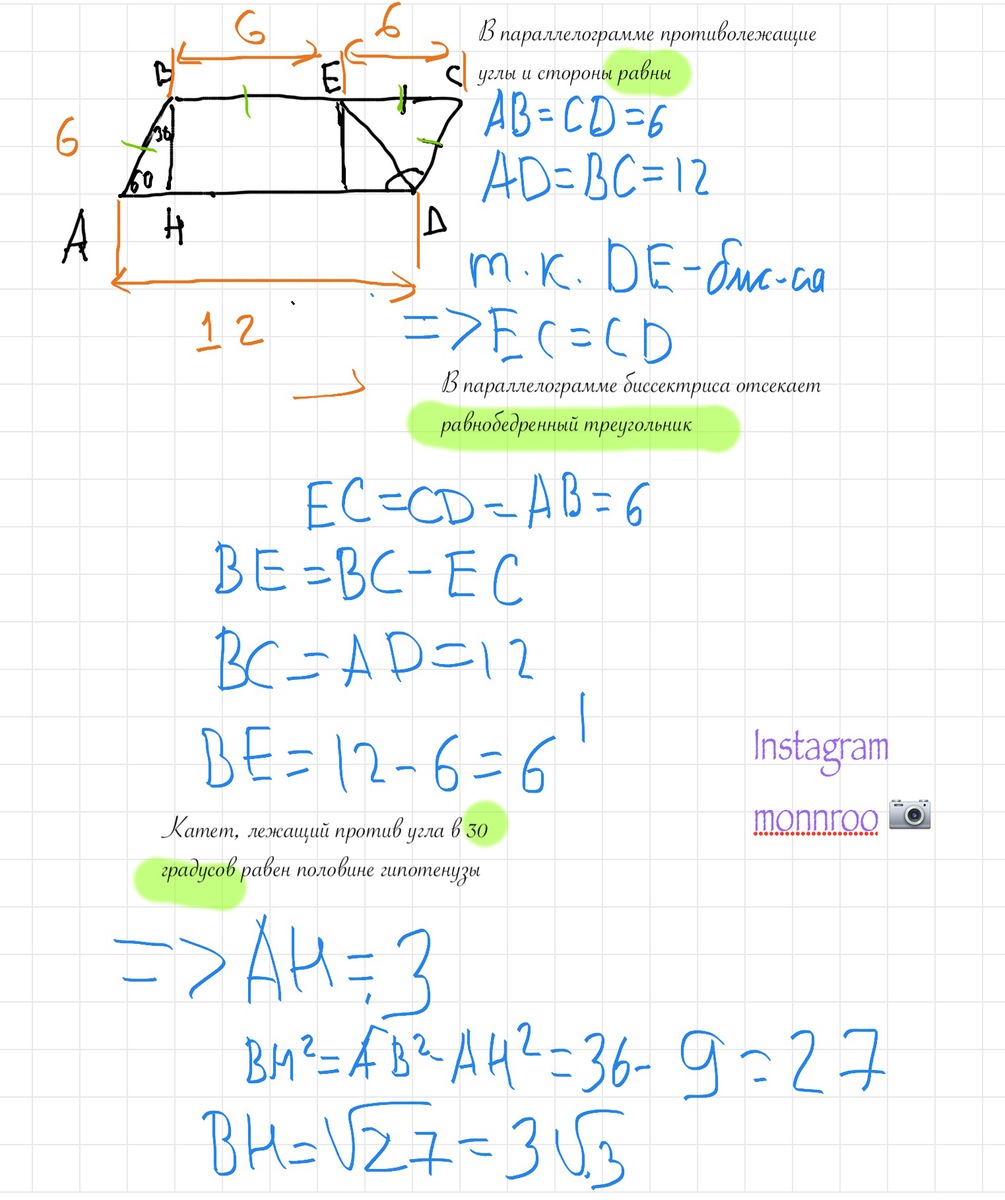 6 6
В параллелограмме противолежащие
B E C
углы и стороны равны
6 30
AB=CD=6
60
AD=BC=12
A H D
т.к. DE-бис-са
12
=>EC=CD
В параллелограмме биссектриса отсекает
равнобедренный треугольник
EC=CD=AB=6
BE=BC-EC
BC=AD=12
BE=12-6=6
Instagram
monnroo
Катет, лежащий против угла в 30
градусов равен половине гипотенузы
=>AH=3
BH²=AB²-AH²=36-9=27
BH=√27=3√3